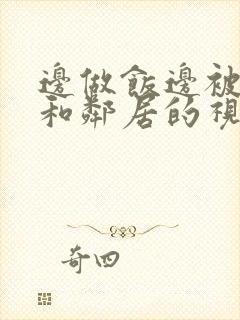 邊做飯邊被
和鄰居的視
奇四